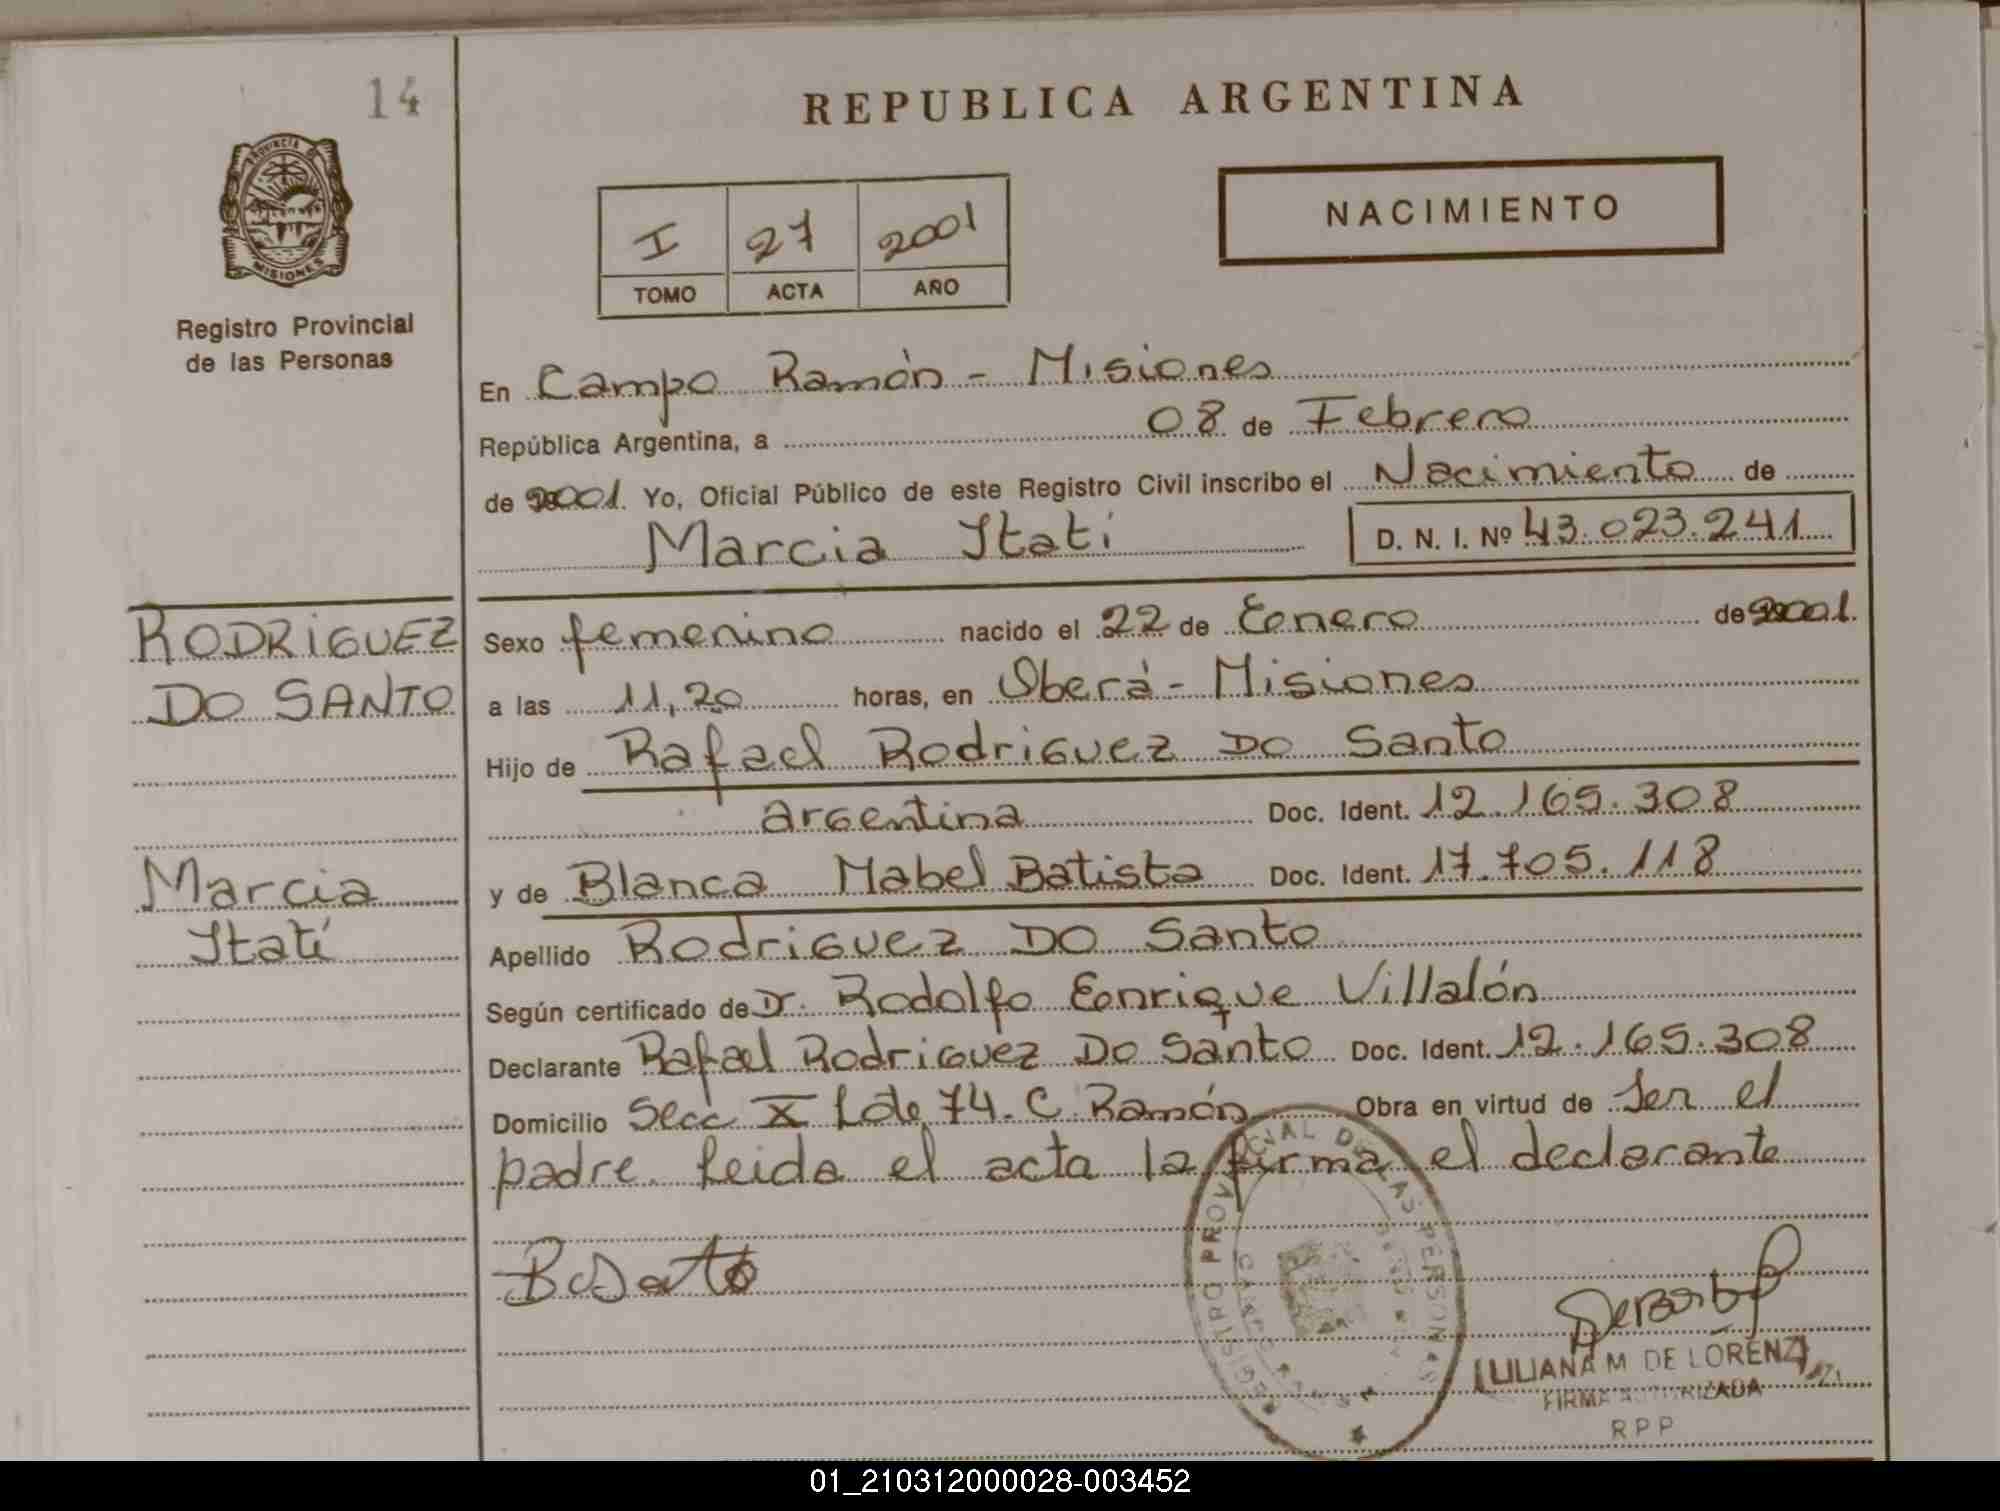 14
REPUBLICA ARGENTINA
PROVINCIA DE
MISIONES
Registro Provincial
de las Personas
NACIMIENTO
I 27 2001
TOMO ACTA AÑO
En Campo Ramón - Misiones
República Argentina, a 08 de Febrero
de 2001. Yo, Oficial Público de este Registro Civil inscribo el Nacimiento de
Marcia Itatí D. N. I. Nº 43.023.241
RODRIGUEZ
DO SANTO
Marcia
Itatí
Sexo femenino nacido el 22 de Enero de 2001.
a las 11,20 horas, en Oberá - Misiones
Hijo de Rafael Rodriguez Do Santo
argentina Doc. Ident. 12.165.308
y de Blanca Mabel Batista Doc. Ident. 17.705.118
Apellido Rodriguez Do Santo
Según certificado de Dr. Rodolfo Enrique Villalón
Declarante Rafael Rodriguez Do Santo Doc. Ident. 12.165.308
Domicilio Secc X Lote 74. C. Ramón Obra en virtud de ser el
padre. Leida el acta la firma el declarante
REGISTRO PROVINCIAL DE LAS PERSONAS
LILIANA M DE LORENZI
FIRMA AUTORIZADA
RPP
01_210312000028-003452